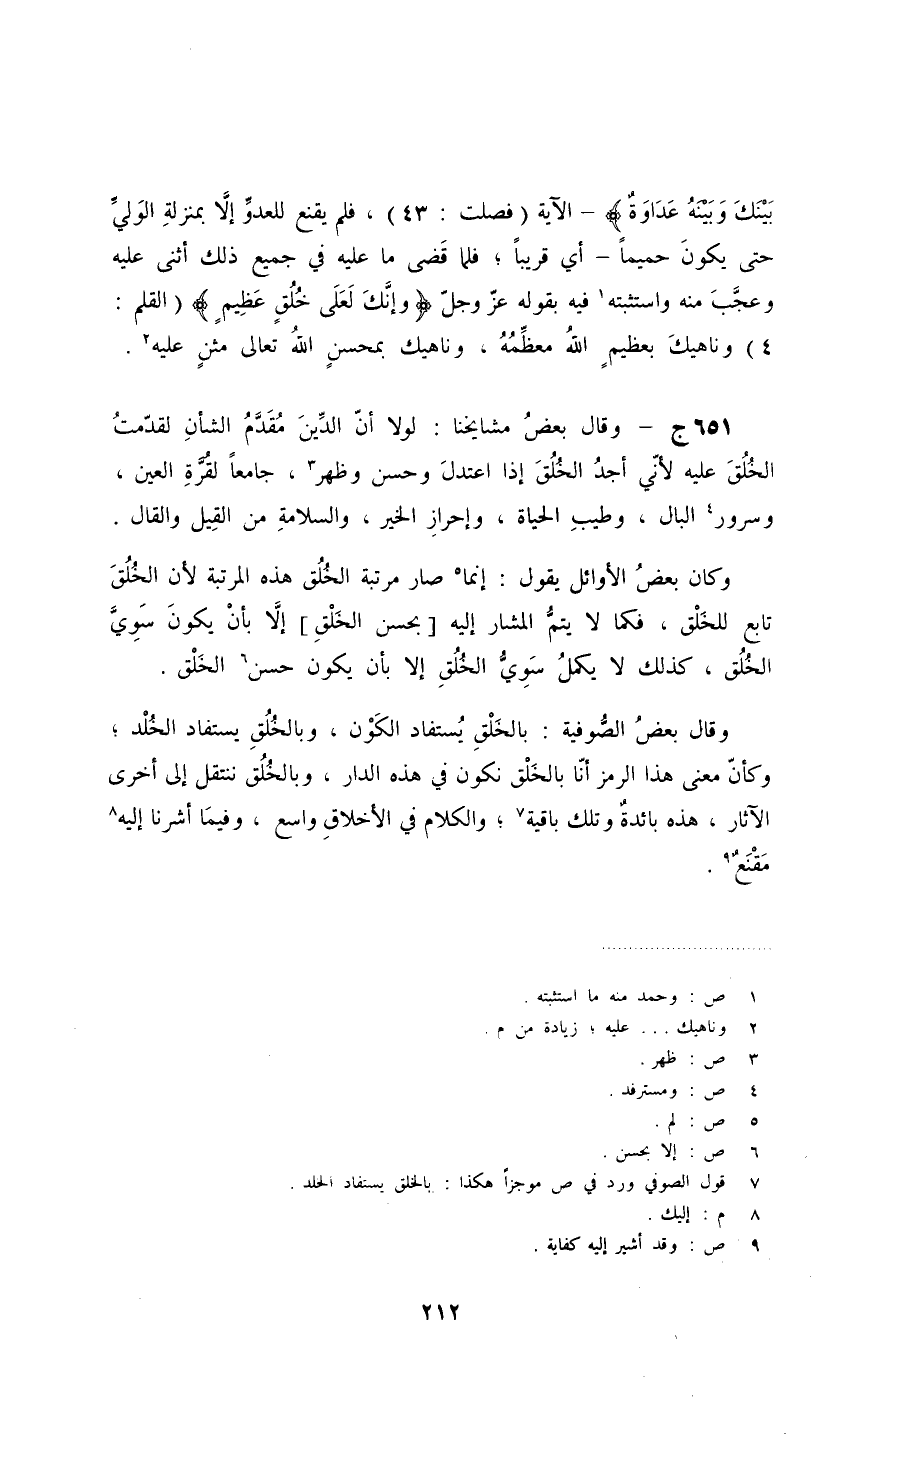 بَيْنَكَ وَبَيْنَهُ عَدَاوَةٌ ﴾ – الآية ( فصلت : ٤٣ ) ، فلم يقنع للعدوِّ إلَّا بمنزلةِ الوَليِّ
حتى يكونَ حميماً – أي قريباً ؛ فلما قَضى ما عليه في جميع ذلك أثنى عليه
وعجَّبَ منه واستثبته١ فيه بقوله عزّ وجلّ ﴿ وإنَّكَ لَعَلَى خُلُقٍ عَظِيمٍ ﴾ ( القلم :
٤ ) وناهيكَ بعظيمٍ اللهُ معظِّمُهُ ، وناهيك بمحسنٍ اللهُ تعالى مثنٍ عليه٢ .
٦٥١ ج – وقال بعضُ مشايخنا : لولا أنّ الدِّينَ مُقَدَّمُ الشأنِ لقدّمتُ
الخُلُقَ عليه لأنّي أجدُ الخُلُقَ إذا اعتدلَ وحسن وظهر٣ ، جامعاً لقُرَّةِ العين ،
وسرور٤ البال ، وطيبِ الحياة ، وإحرازِ الخير ، والسلامةِ من القِيل والقال .
وكان بعضُ الأوائل يقول : إنما٥ صار مرتبة الخُلُق هذه المرتبة لأن الخُلُقَ
تابع للخَلْق ، فكما لا يتمُّ المشار إليه [ بحسن الخَلْقِ ] إلَّا بأنْ يكونَ سَوِيَّ
الخُلُق ، كذلك لا يكملُ سَوِيُّ الخُلُقِ إلا بأن يكون حسن٦ الخَلْق .
وقال بعضُ الصُّوفية : بالخَلْقِ يُستفاد الكَوْن ، وبالخُلُقِ يستفاد الخُلْد ؛
وكأنّ معنى هذا الرمز أنّا بالخَلْق نكون في هذه الدار ، وبالخُلُق ننتقل إلى أخرى
الآثار ، هذه بائدةٌ وتلك باقية٧ ؛ والكلام في الأخلاقِ واسع ، وفيمَا أشرنا إليه٨
مَقْنَعٌ٩ .
١ ص : وحمد منه ما استثبته .
٢ وناهيك ... عليه ؛ زيادة من م .
٣ ص : ظهر .
٤ ص : ومسترفد .
٥ ص : لم .
٦ ص : إلا بحسن .
٧ قول الصوفي ورد في ص موجزاً هكذا : بالخلق يستفاد الخلد .
٨ م : إليك .
٩ ص : وقد أشير إليه كفاية .
٢١٢